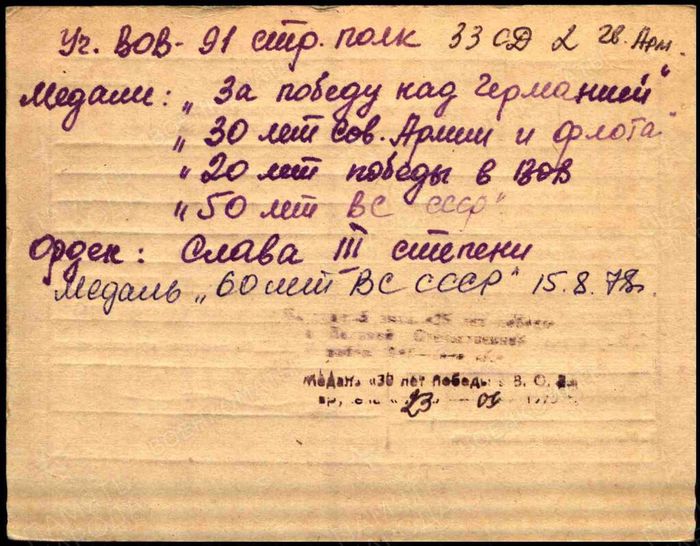 Уч. ВОВ - 91 стр. полк 33 СД 2 гв. Арм.
Медали: „За победу над Германией"
„30 лет Сов. Армии и флота"
„20 лет победы в ВОВ
„50 лет ВС СССР"
Орден: Слава III степени
Медаль „60 лет ВС СССР" 15.8.78г.
«25 лет победы
в Великой Отечественной
войне
Медаль «30 лет Победы в В. О. В.»
23 —